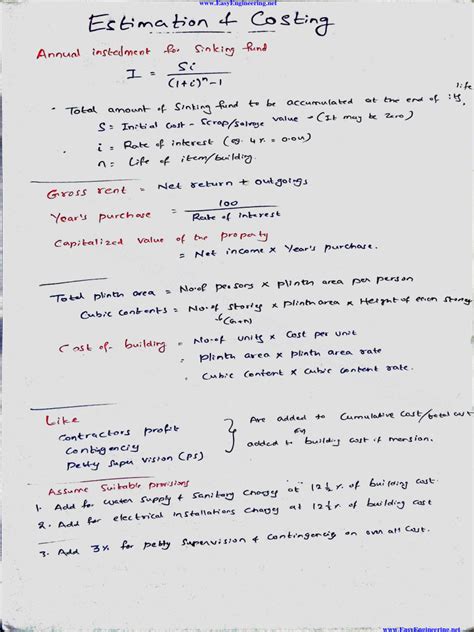 www.EasyEngineering.net
Estimation & Costing
Annual instedment for Sinking fund
I = Si / (1+i)^n - 1
life
· Total amount of Sinking fund to be accumulated at the end of its,
S = Initial Cost - Scrap/salvage value → (It may be zero)
i = Rate of interest (eg. 4% = 0.04)
n = Life of item/building.
Gross rent = Net return + outgoings
Year's purchase = 100 / Rate of interest
Capitalized value of the property
= Net income × Year's purchase.
Total plinth area = No.of persons × plinth area per person
Cubic contents = No.of stories × plinth area × Height of each storey
(G+n)
Cost of building = No.of units × Cost per unit
= plinth area × plinth area rate
= Cubic content × Cubic content rate.
Like
Contractors profit
Contingency
petty super vision (PS)
Are added to Cumulative cost/total cost
added to building cost if mension.
Assume Suitable provisions
1. Add for water supply & Sanitary charges at 12½% of building cost.
2. Add for electrical installations charges at 12½% of building cost
3. Add 3% for petty supervision & contingencies on over all cost.
www.EasyEngineering.net